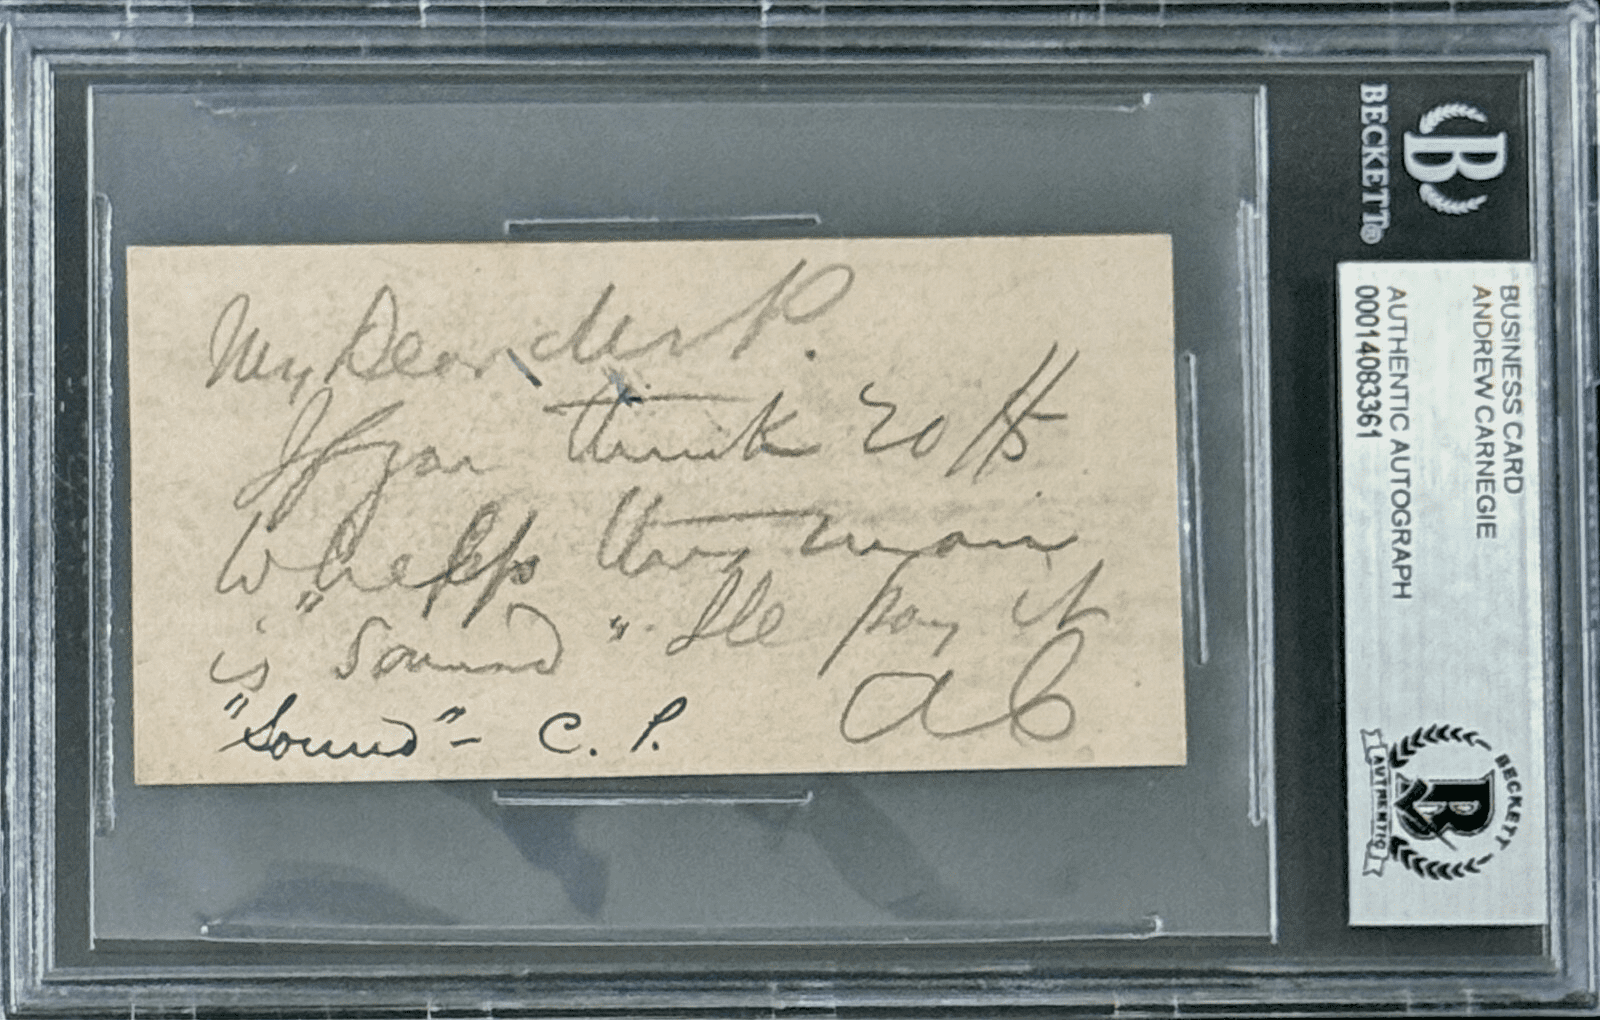 My Dear Mr P.
If you think 20 $
helps this man
is "Sound" Ile pay it
AC
"Sound" - C. P.
BECKETT®
B
BUSINESS CARD
ANDREW CARNEGIE
AUTHENTIC AUTOGRAPH
00014083361
BECKETT
AUTHENTIC